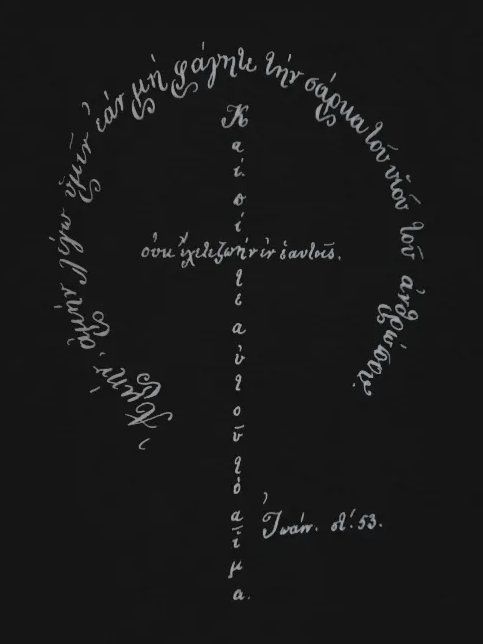 Ἀμήν, ἀμήν λέγω ὑμῖν, ἐάν μή φάγητε τήν σάρκα τοῦ υἱοῦ τοῦ ἀνθρώπου.
Καί πίητε αὐτοῦ τό αἷμα.
οὐκ ἔχετε ζωήν ἐν ἑαυτοῖς.
Ἰωάν. στ΄. 53.